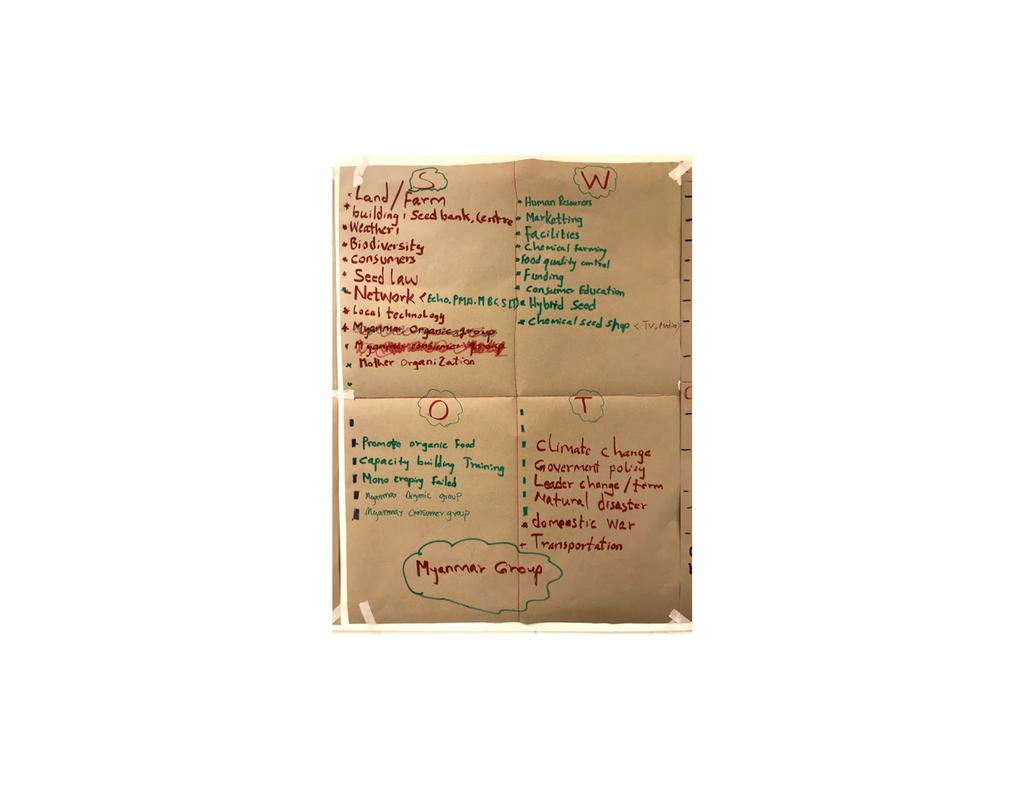 S
Land/Farm
building, Seed bank, Centre
Weather,
Biodiversity
Consumers
Seed law
Network (Echo, PMA, MBC,
Local technology
Myanmar Organic group
Myanmar consumer group
Mother Organization
W
Human Resources
Marketting
Facilities
Chemical farming
Food quality control
Funding
Consumer Education
Hybrid Seed
Chemical seed shop < TV, Media)
O
Promote organic Food
Capacity building Training
Mono croping failed
Myanmar Organic group
Myanmar Consumer group
T
Climate change
Goverment policy
Leader change/term
Natural disaster
domeastic war
Transportation
Myanmar Group